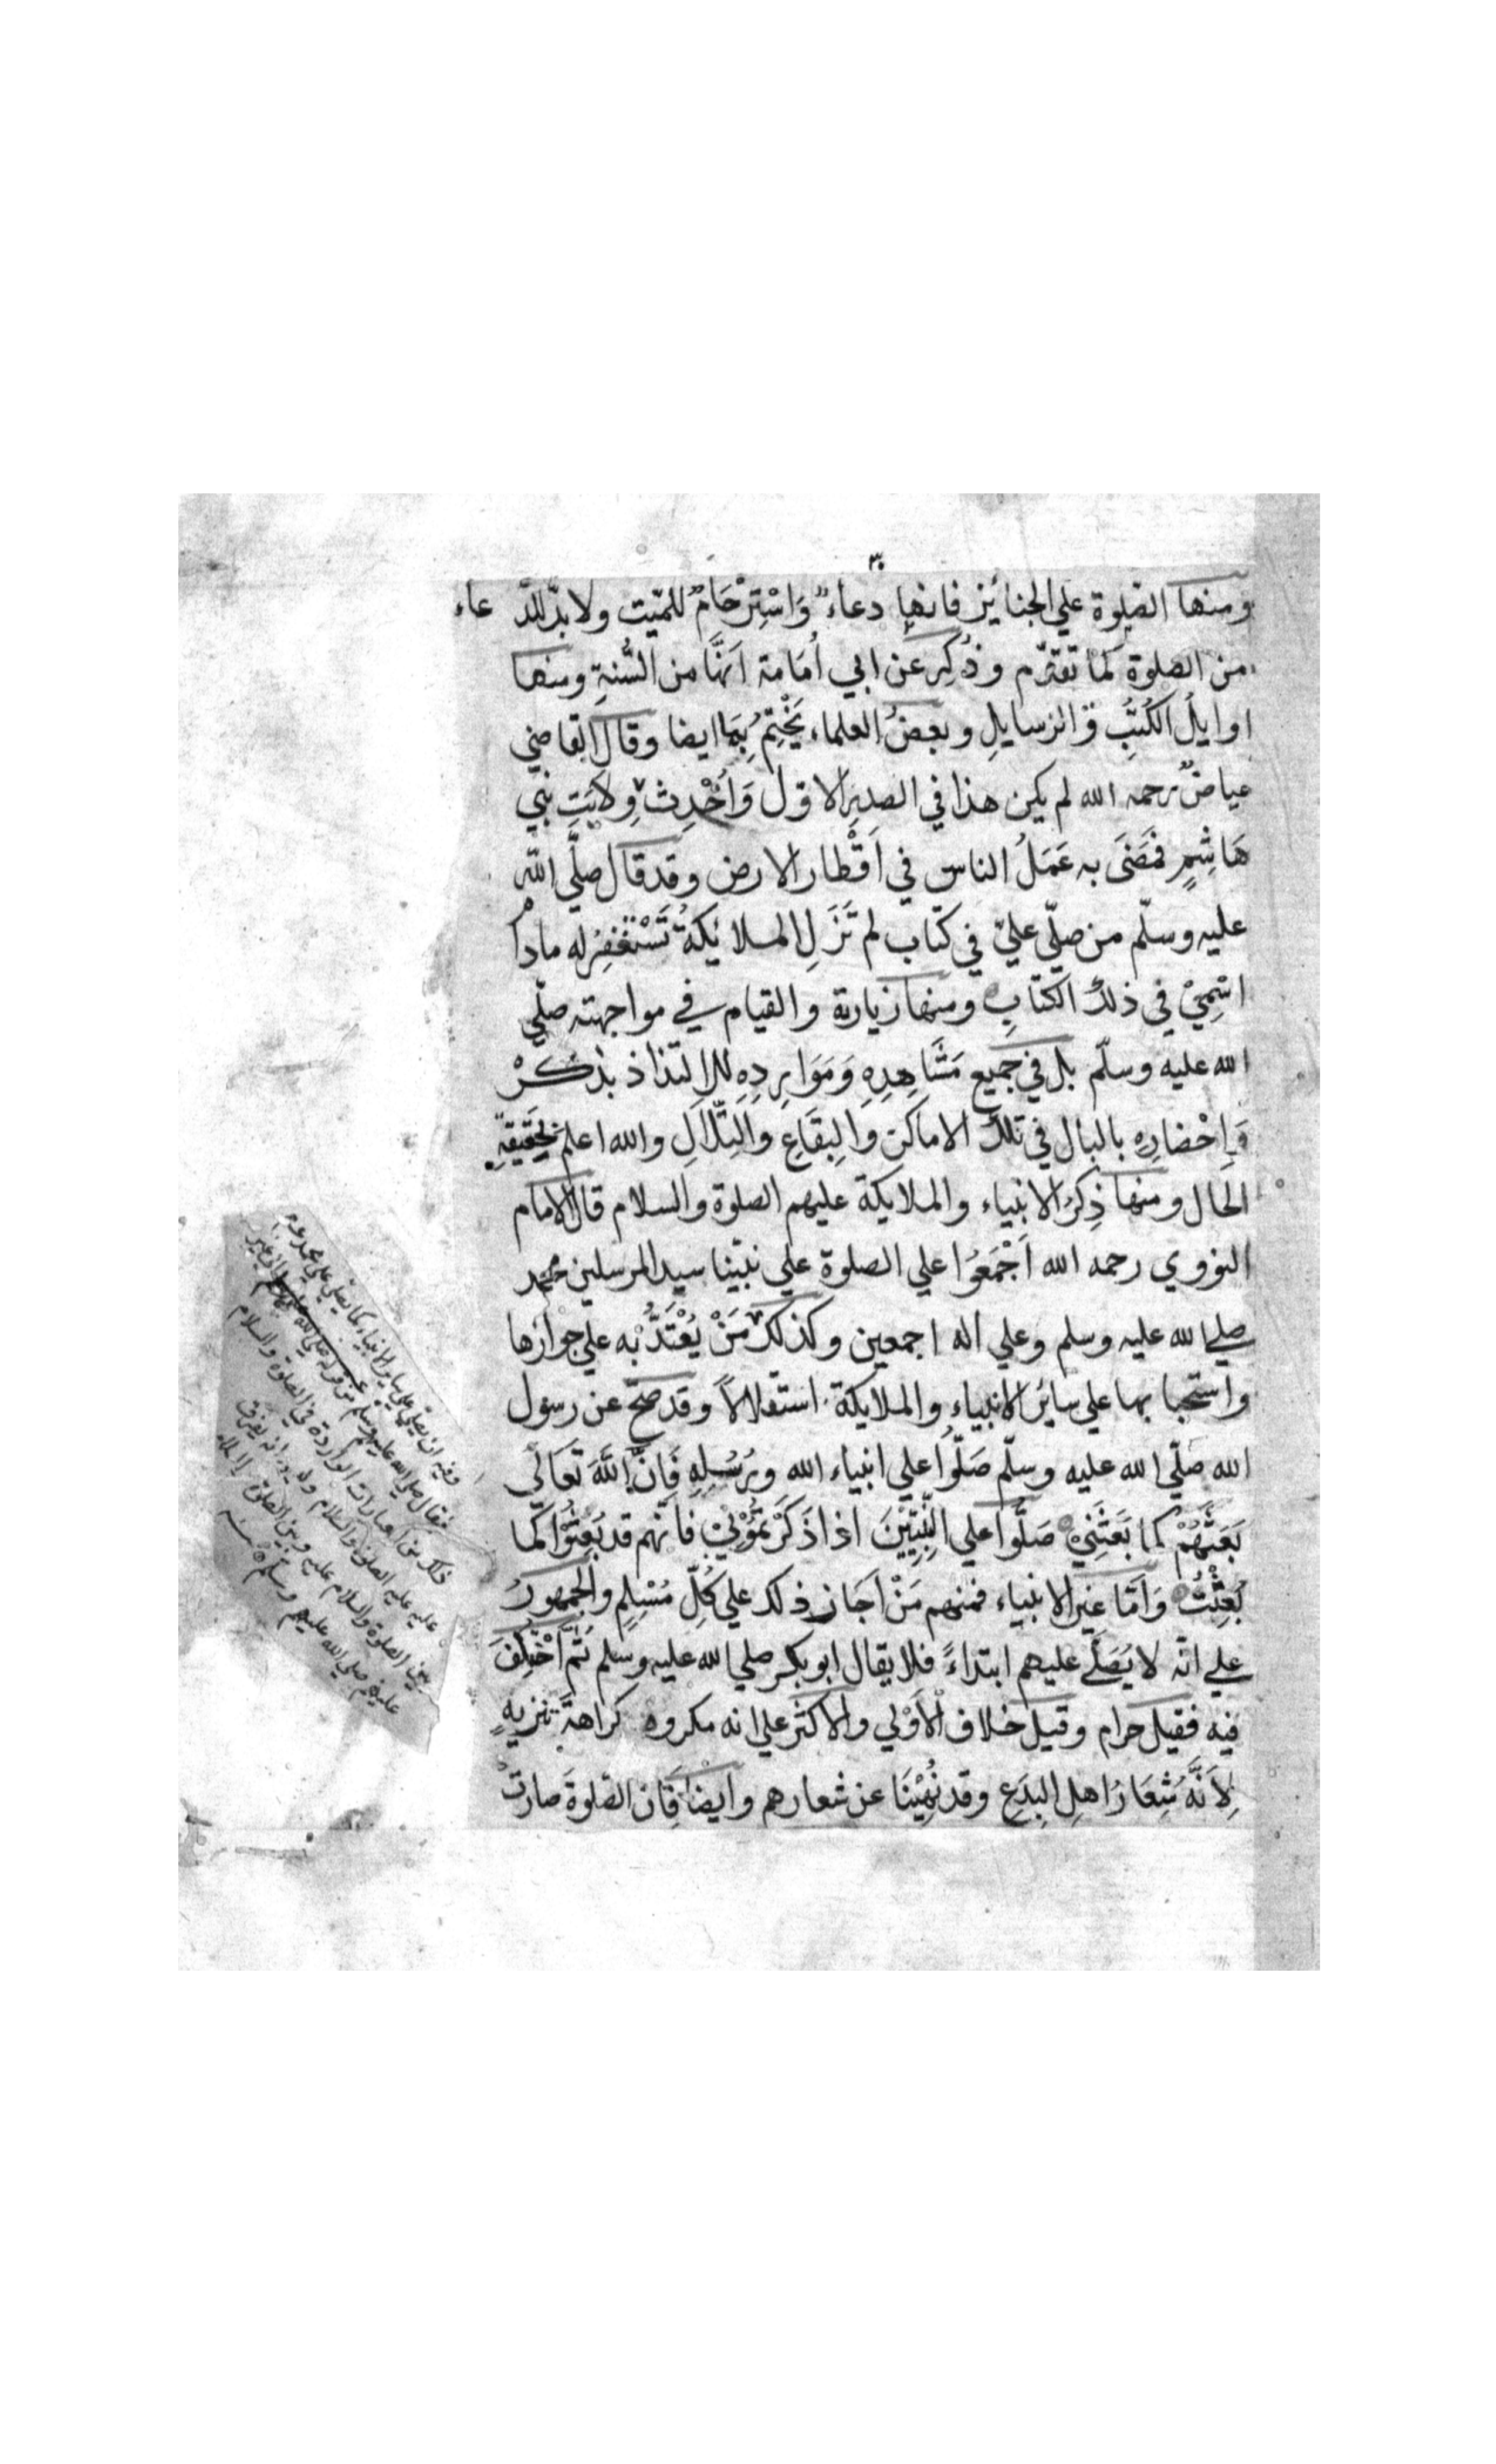 ومنها الصلوة علي الجنائز فانها دعاءٌ وَاسْتِرْحَامٌ للميّت ولا بدّ للدّ عاء
من الصلوة كما تقدّم وذُكِرَ عن ابي اُمَامة اَنَّهَا من السُّنةِ ومنها
اوايلُ الكُتُبِ وَ الرسايلِ وبعضُ العلماء يَخْتِمُ بِهَا ايضا وقال القاضي
عياضٌ رحمه الله لم يكن هذا في الصدرِ الاوّل وَاُحْدِثَ وِلايَتِ بَنِي
هَاشِمٍ فمَضَى به عَمَلُ الناس في اَقْطار الارض وقد قال صلَّى اللّه
عليه وسلّم من صلّي عليّ في كتاب لم تَزَلِ الملائكةُ تَسْتَغْفِرُ له مادام
اسْمِيْ في ذلك الكتابِ ومنها زيارة والقيام في مواجهته صلّي
الله عليه وسلّم بل في جميع مَشَاهِدِهِ وَمَوَارِدِهِ للالتذاذ بذكْرْ
وَاِحْضارِهِ بالبال في تلك الاماكن وَالبِقَاعِ والتِّلاَلِ والله اعلم بحَقيقةِ
الحَال ومنها ذِكرُ الانبياء والملايكة عليهم الصلوة والسلام قال الامام
النووي رحمه الله اَجْمَعُوا علي الصلوة علي نبيّنا سيد المرسلين محمد
صلي الله عليه وسلم وعلي اله اجمعين وكذلك مَنْ يُعْتَدُّ به علي جوازها
واستحبابها علي سائر الانبياء والملايكة استقلالاً وقد صحّ عن رسول
الله صلّي الله عليه وسلّم صَلُّوا علي انبياء الله ورُسُلِهِ فَاِنَّ اللّٰهَ تعَالَي
بَعَثَهُمْ كما بَعَثَنِيْ صَلُّوا علي النَّبِيِّيْنَ اذا ذَكَرْتُمُوْنِيْ فانّهم قد بُعِثُوا كما
بُعِثْتُ وَاَمَّا غيرُ الانبياء فمنهم مَنْ اَجَاز ذلك علي كُلِّ مُسْلِمٍ والجُمهورُ
علي انّه لا يُصَلَّي عليهم ابتداءً فلا يقال ابو بكر صلي الله عليه وسلم ثُمَّ اخْتُلِفَ
فيه فقيل حرام وقيل خلاف الاَوْلي والاكثر علي انه مكروه كراهةَ تنزيهٍ
لِاَنَّهُ شِعَارُ اهلِ البِدَعِ وقد نُهِيْنَا عن شعارهم وايضا فَاِن الصّلوةَ صارتْ
وفيه ان يصلّي علي سائر الانبياء كما يصلي علي محمد
فقال صلي الله عليه وسلم
ذلك من العبارات الواردة في الصلوة والسلام
عليه عليه الصلوة والسلام ولا يفرق
بين الصلوة والسلام عليه وبين الصلوة
عليهم صلي الله عليهم وسلم